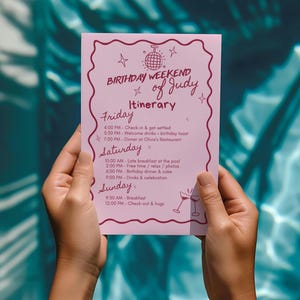 BIRTHDAY WEEKEND
of Judy
Itinerary
Friday
4:00 PM - Check-in & get settled
5:30 PM - Welcome drinks + birthday toast
7:30 PM - Dinner at Chino's Restaurant
Saturday
10:00 AM - Late breakfast at the pool
2:00 PM - Free time / relax / photos
6:00 PM - Birthday dinner & cake
9:00 PM - Drinks & celebration
Sunday
9:30 AM - Breakfast
12:00 PM - Check-out & hugs